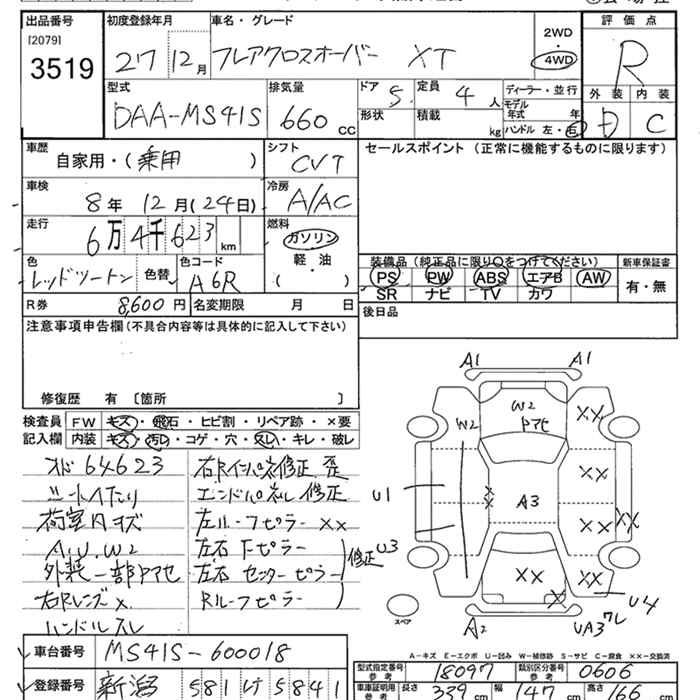 出品番号 初度登録年月 車名・グレード 2WD 評価点
[2079] 3519 27 12月 フレアクロスオーバー XT 4WD R
型式 排気量 ドア 定員 ディーラー・並行 外装 内装
DAA-MS41S 660cc 5 4人 モデル年式 年 D C
形状 積載 kg ハンドル 左・右
車歴 シフト セールスポイント (正常に機能するものに限ります)
自家用・(乗用) CVT
車検 冷房
8年 12月(24日) A/AC
走行 燃料
6万4千623km ガソリン
軽・油
( ・ )
色 色替 色コード 装備品 (純正品に限り○をつけてください) 新車保証書
レッドツートン A6R PS PW ABS エアB AW 有・無
SR ナビ TV カワ
R券 8,600円 名変期限 月 日 後日品
注意事項申告欄(不具合内容等は具体的に記入して下さい)
修復歴 有〔箇所 〕
検査員 FW キズ・飛石・ヒビ割・リペア跡・×要
記入欄 内装 キズ・汚レ・コゲ・穴・スレ・キレ・破レ
オド64623 右Rインパネ修正 歪
シートヘたり エンドパネル 修正
荷室内キズ 左ルーフピラー ××
A.U.W2 左右 Fピラー
外装一部アセ 左右 センターピラー 修正
右Rレンズ× Rルーフピラー
ハンドルスレ
A1 A1
W2 W2 ××
××
U1 A3 ××
×× ××
U3
×× ×× U4
スペア A2 UA3
A-キズ E-エクボ U-凹み W-補修跡 S-サビ C-腐食 ××-交換済
車台番号 MS41S-600018
型式指定番号 参考 18097 類別区分番号 参考 0606
登録番号 新潟 581 け 5841
車庫証明用 参考 長さ 339cm 幅 147cm 高さ 166cm